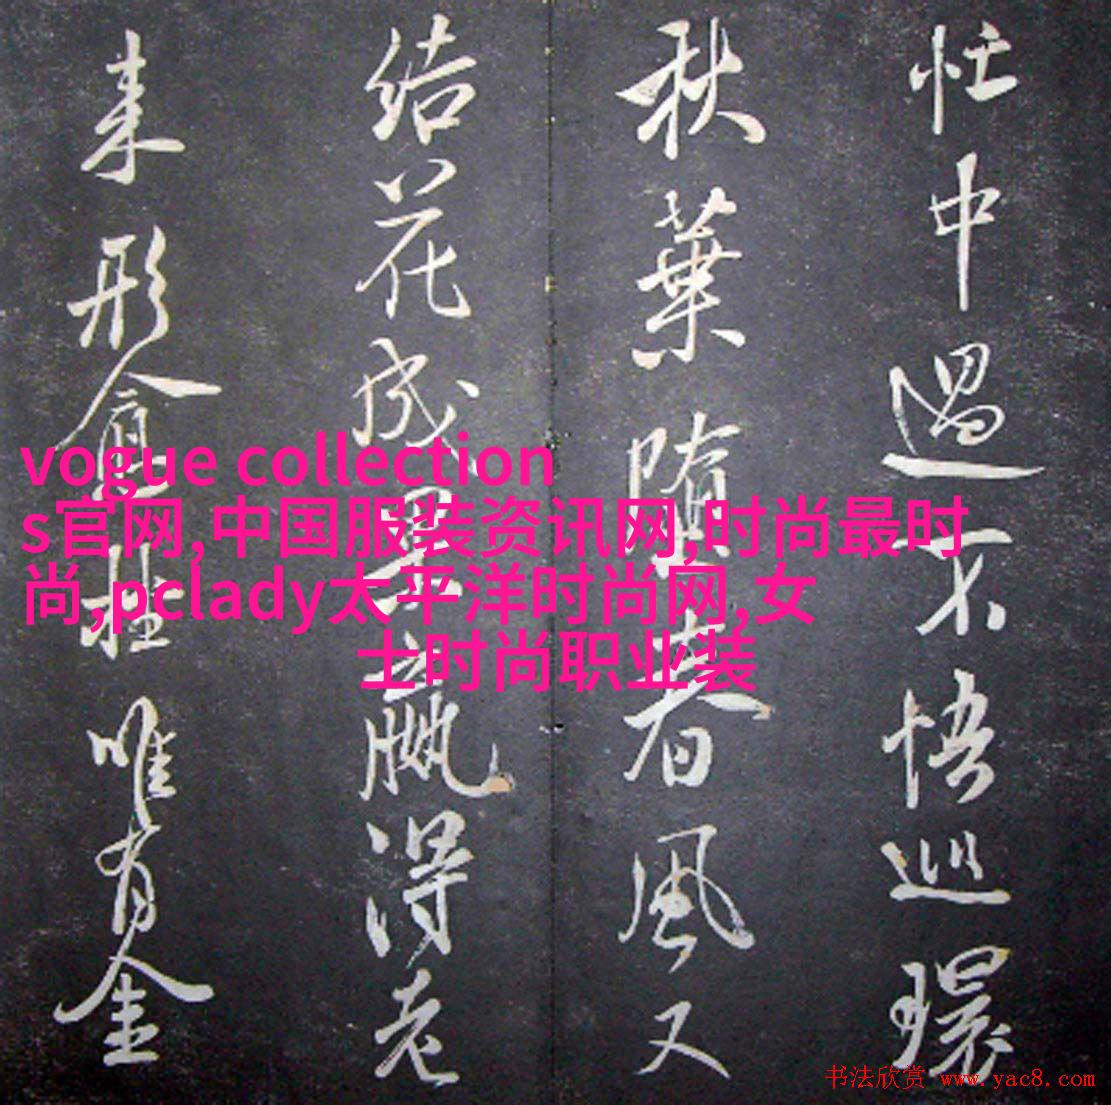 忙中過不悟巡環
秋葉堕春風又
结花成果羸得老
来形唯有金
vogue collection
s官网,中国服装资讯网,时尚最时
尚,pclady太平洋时尚网,女
士时尚职业装
书法欣赏 www.yac8.com